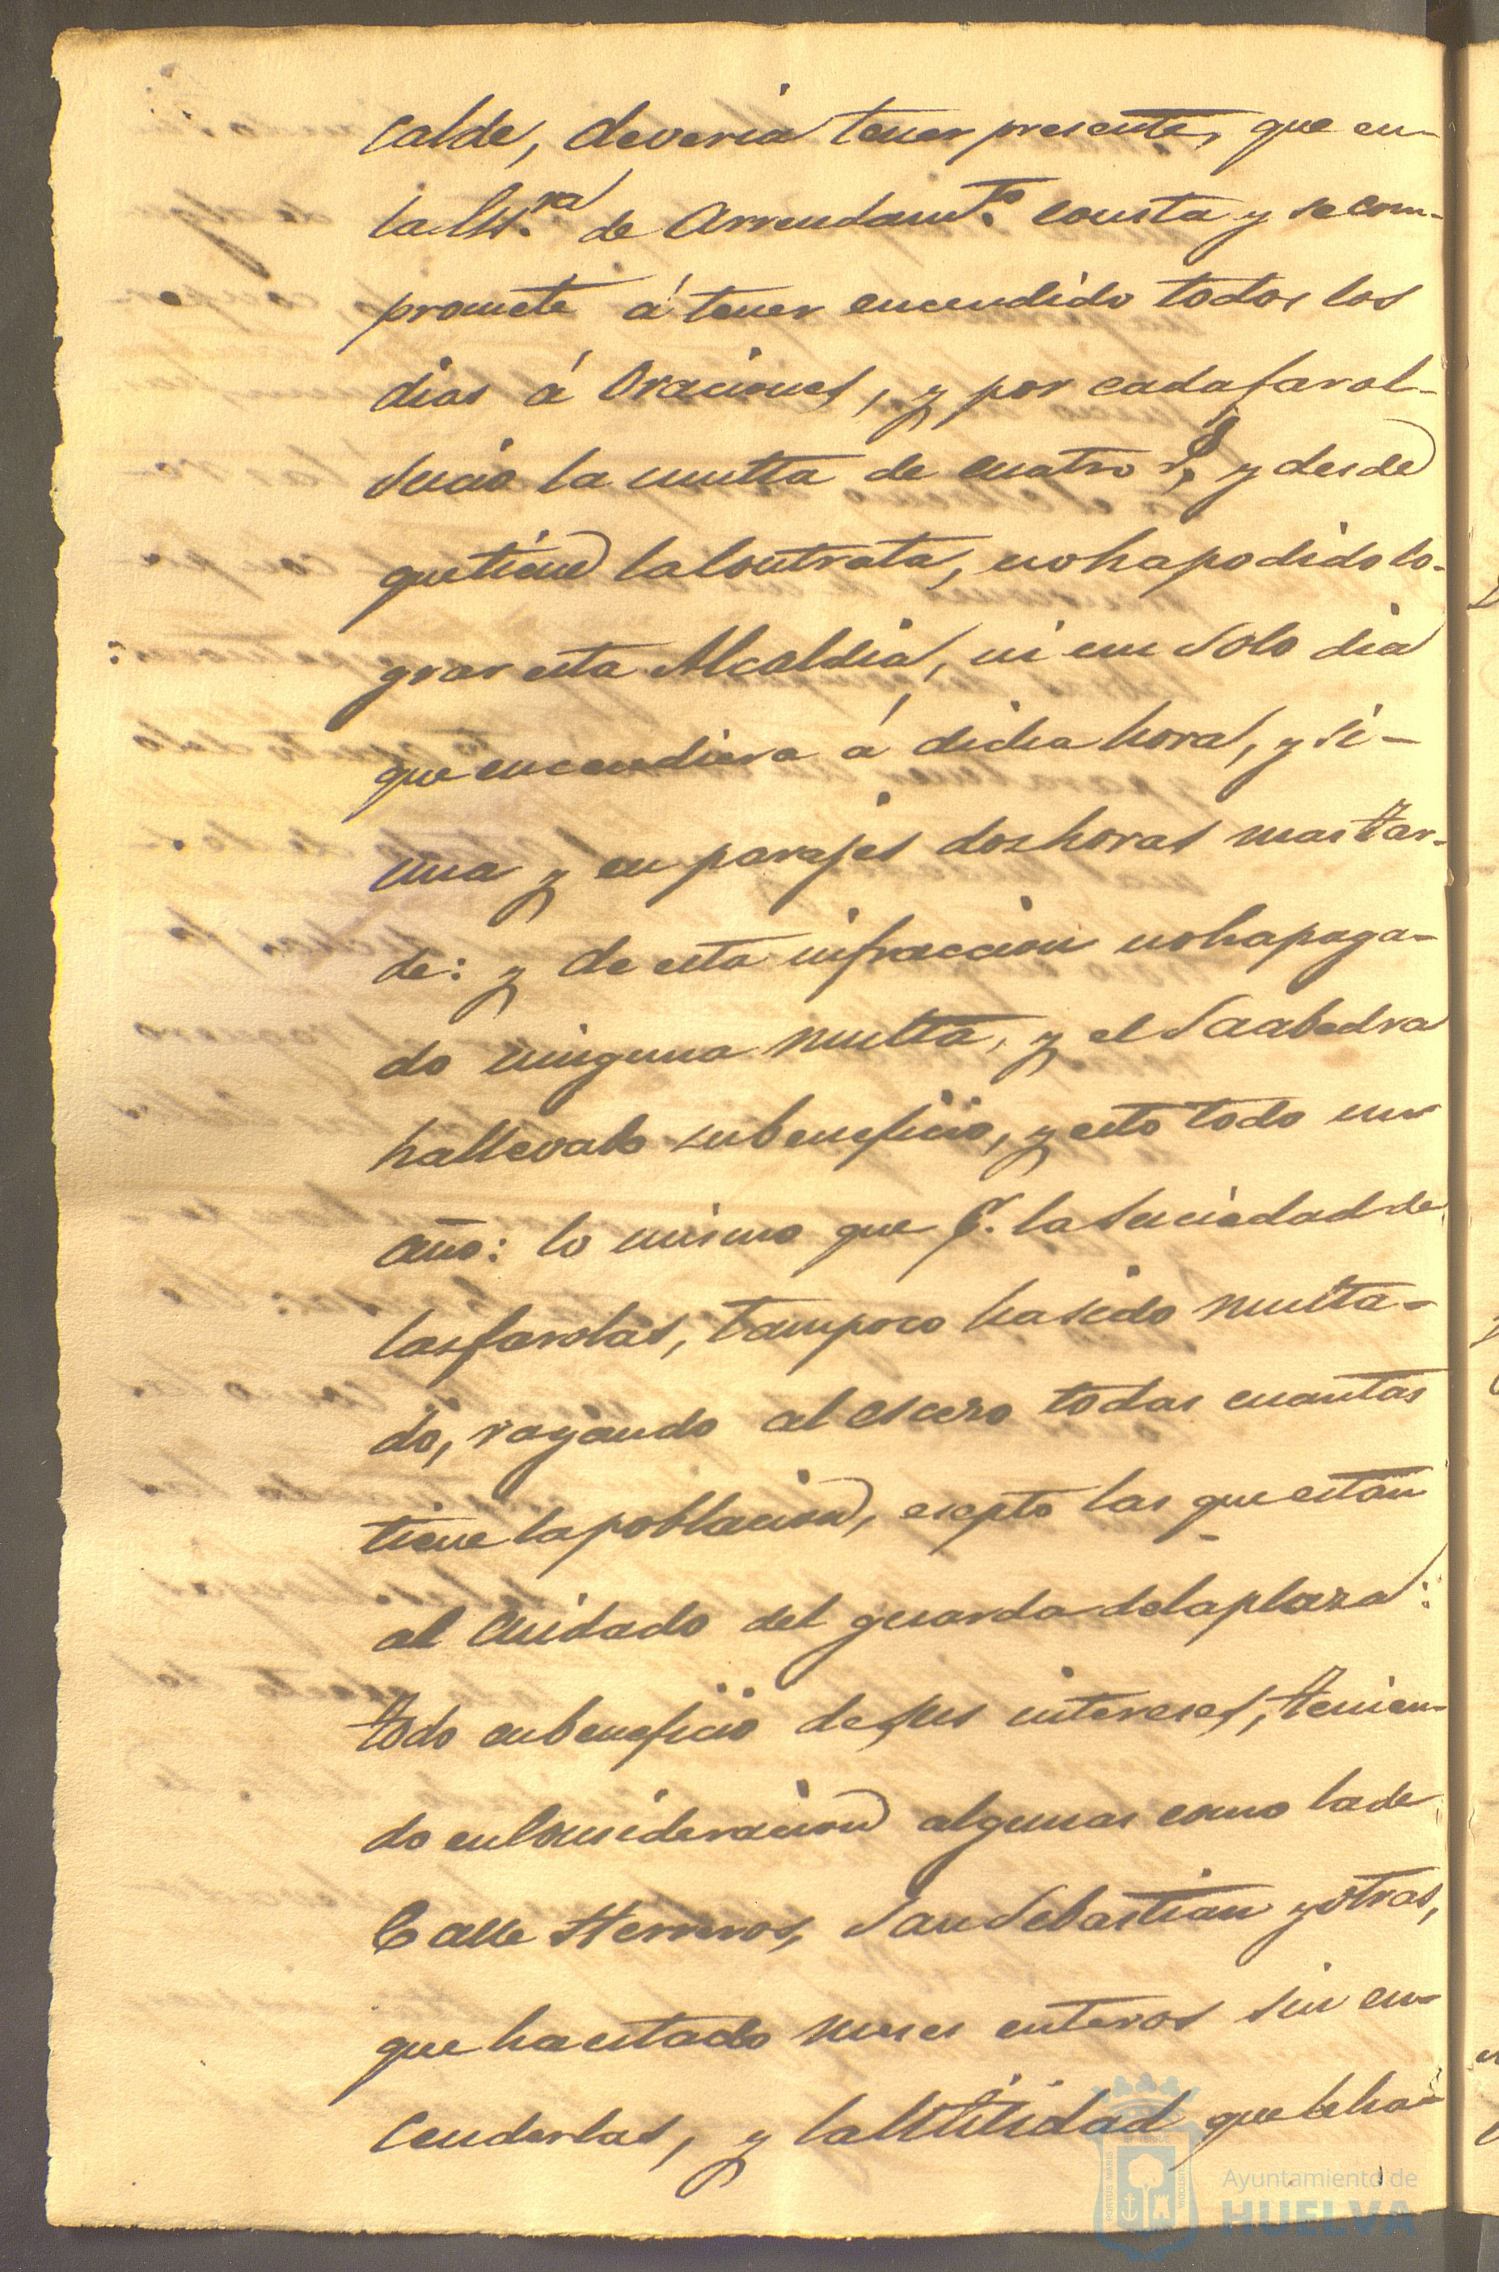 calde, deveria tener presente, que en
la Es.ra de Arrendam.to consta y se com-
promete á tener encendido todos los
dias á Oraciones, y por cada farol-
sucio la multa de cuatro r.s, y desde
que tiene la Contrata, no ha podido lo-
grar esta Alcaldia, ni un solo dia
que encendiera á dicha hora, y si-
una y en parajes dos horas mas tar-
de: y de esta infraccion no ha paga-
do ninguna multa, y el Saabedra
ha llevado su beneficio, y esto todo un
año: lo mismo que p.r la suciedad de
las farolas, tampoco ha sido multa-
do, rayando al esceso todas cuantas
tiene la poblacion, esepto las que están
al cuidado del guarda de la plaza:
todo en beneficio de sus intereses, tenien-
do en consideracion algunas como la de
Calle Herreros, San Sebastian y otras,
que ha estado meses enteros sin en-
cenderlas, y la Utilidad que le ha-
Ayuntamiento de
HUELVA